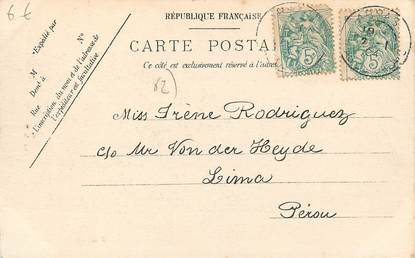 6 €
RÉPUBLIQUE FRANÇAISE
CARTE POSTA
Ce côté est exclusivement réservé à l'adre
Expédié par
M
Demt à
Rue
N°
L'inscription du nom et de l'adresse de
l'expéditeur est facultative
5
5
82
Miss Irène Rodriguez
c/o Mr Von der Heyde
Lima
Pérou